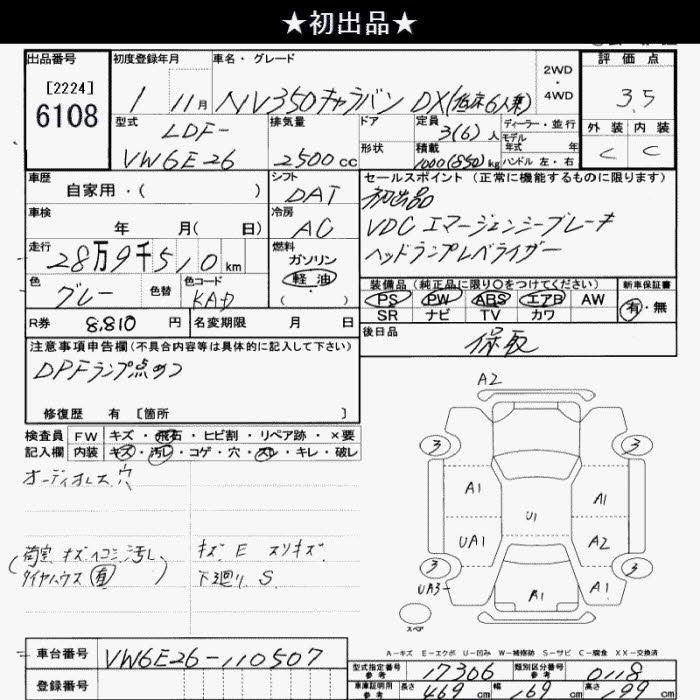 ★初出品★
出品番号
[2224]
6108
初度登録年月
1 11月
車名・グレード
NV350キャラバン DX(低床6人乗)
2WD
・
4WD
評価点
3.5
外装 内装
C C
型式
LDF-
VW6E26
排気量
2500cc
ドア
形状
定員
3(6)人
積載
1000(850)kg
ディーラー・並行
モデル
年式 年
ハンドル 左・右
車歴
自家用・( )
シフト
DAT
車検
年 月( 日)
冷房
AC
走行
28万9千510km
燃料
ガソリン
軽油
( )
色
グレー
色替
色コード
KAD
R券 8,810 円
名変期限 月 日
セールスポイント(正常に機能するものに限ります)
初出品
VDC エマージェンシーブレーキ
ヘッドランプレベライザー
装備品(純正品に限り○をつけてください)
PS PW ABS エアB AW
SR ナビ TV カワ
新車保証書
有・無
後日品
保取
注意事項申告欄(不具合内容等は具体的に記入して下さい)
DPFランプ点めつ
修復歴 有 [箇所 ]
検査員 FW キズ・飛石・ヒビ割・リペア跡・×要
記入欄 内装 キズ・汚レ・コゲ・穴・スレ・キレ・破レ
オーディオレス穴
(荷室 キズ ヘコミ 汚レ
タイヤハウス 有)
キズ E スリキズ
下廻り S
A2
3 3
A1 A1
U1
UA1 A2
3 3
UA3 A1
A1
スペア
A-キズ E-エクボ U-凹み W-補修跡 S-サビ C-腐食 XX-交換済
車台番号 VW6E26-110507
登録番号
型式指定番号
参考
17306
類別区分番号
参考
0118
車庫証明用
参考
長さ 469 cm 幅 169 cm 高さ 199 cm